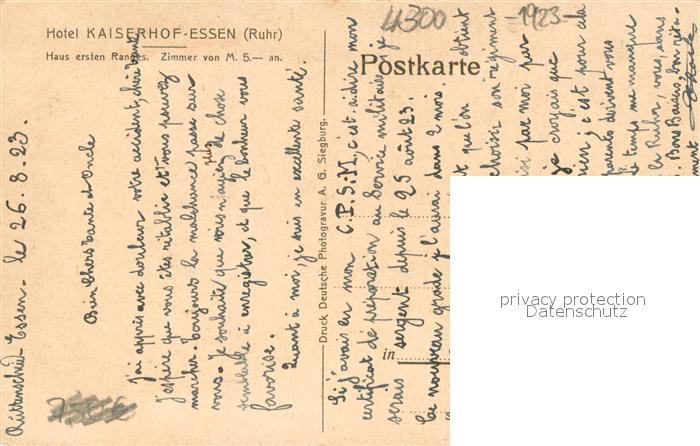 Hotel KAISERHOF-ESSEN (Ruhr)
Haus ersten Ranges. Zimmer von M. 5.— an.
4300
-1923-
Postkarte
Druck Deutsche Photogravur A. G. Siegburg.
Rüttenscheid-Essen. le 26.8.23.
Bien Chers Tante et Oncle
J'ai appris avec douleur votre accident, chère tante
j'espère que vous êtes rétablie et vous pouvez
marcher. Toujours la malchance passe sur
vous. Je souhaite que vous n'ayiez plus de chose
semblable à enregistrer, et que le bonheur vous
favorise.
Quant à moi, je suis en excellente santé.
Si j'avais eu mon C.P.S.M, c'est-à-dire mon
certificat de préparation au Service militaire, je
serais sergent depuis le 25 août 23.
Ce nouveau grade je l'aurai dans 2 mois.
qu'on obtient
choisir son régiment
si par moi par
je croyais que
c'est pour cela
parents doivent vous
le temps me manque
la Ruhr, vous, sans
Bons Baisers, bon
in
privacy protection
Datenschutz